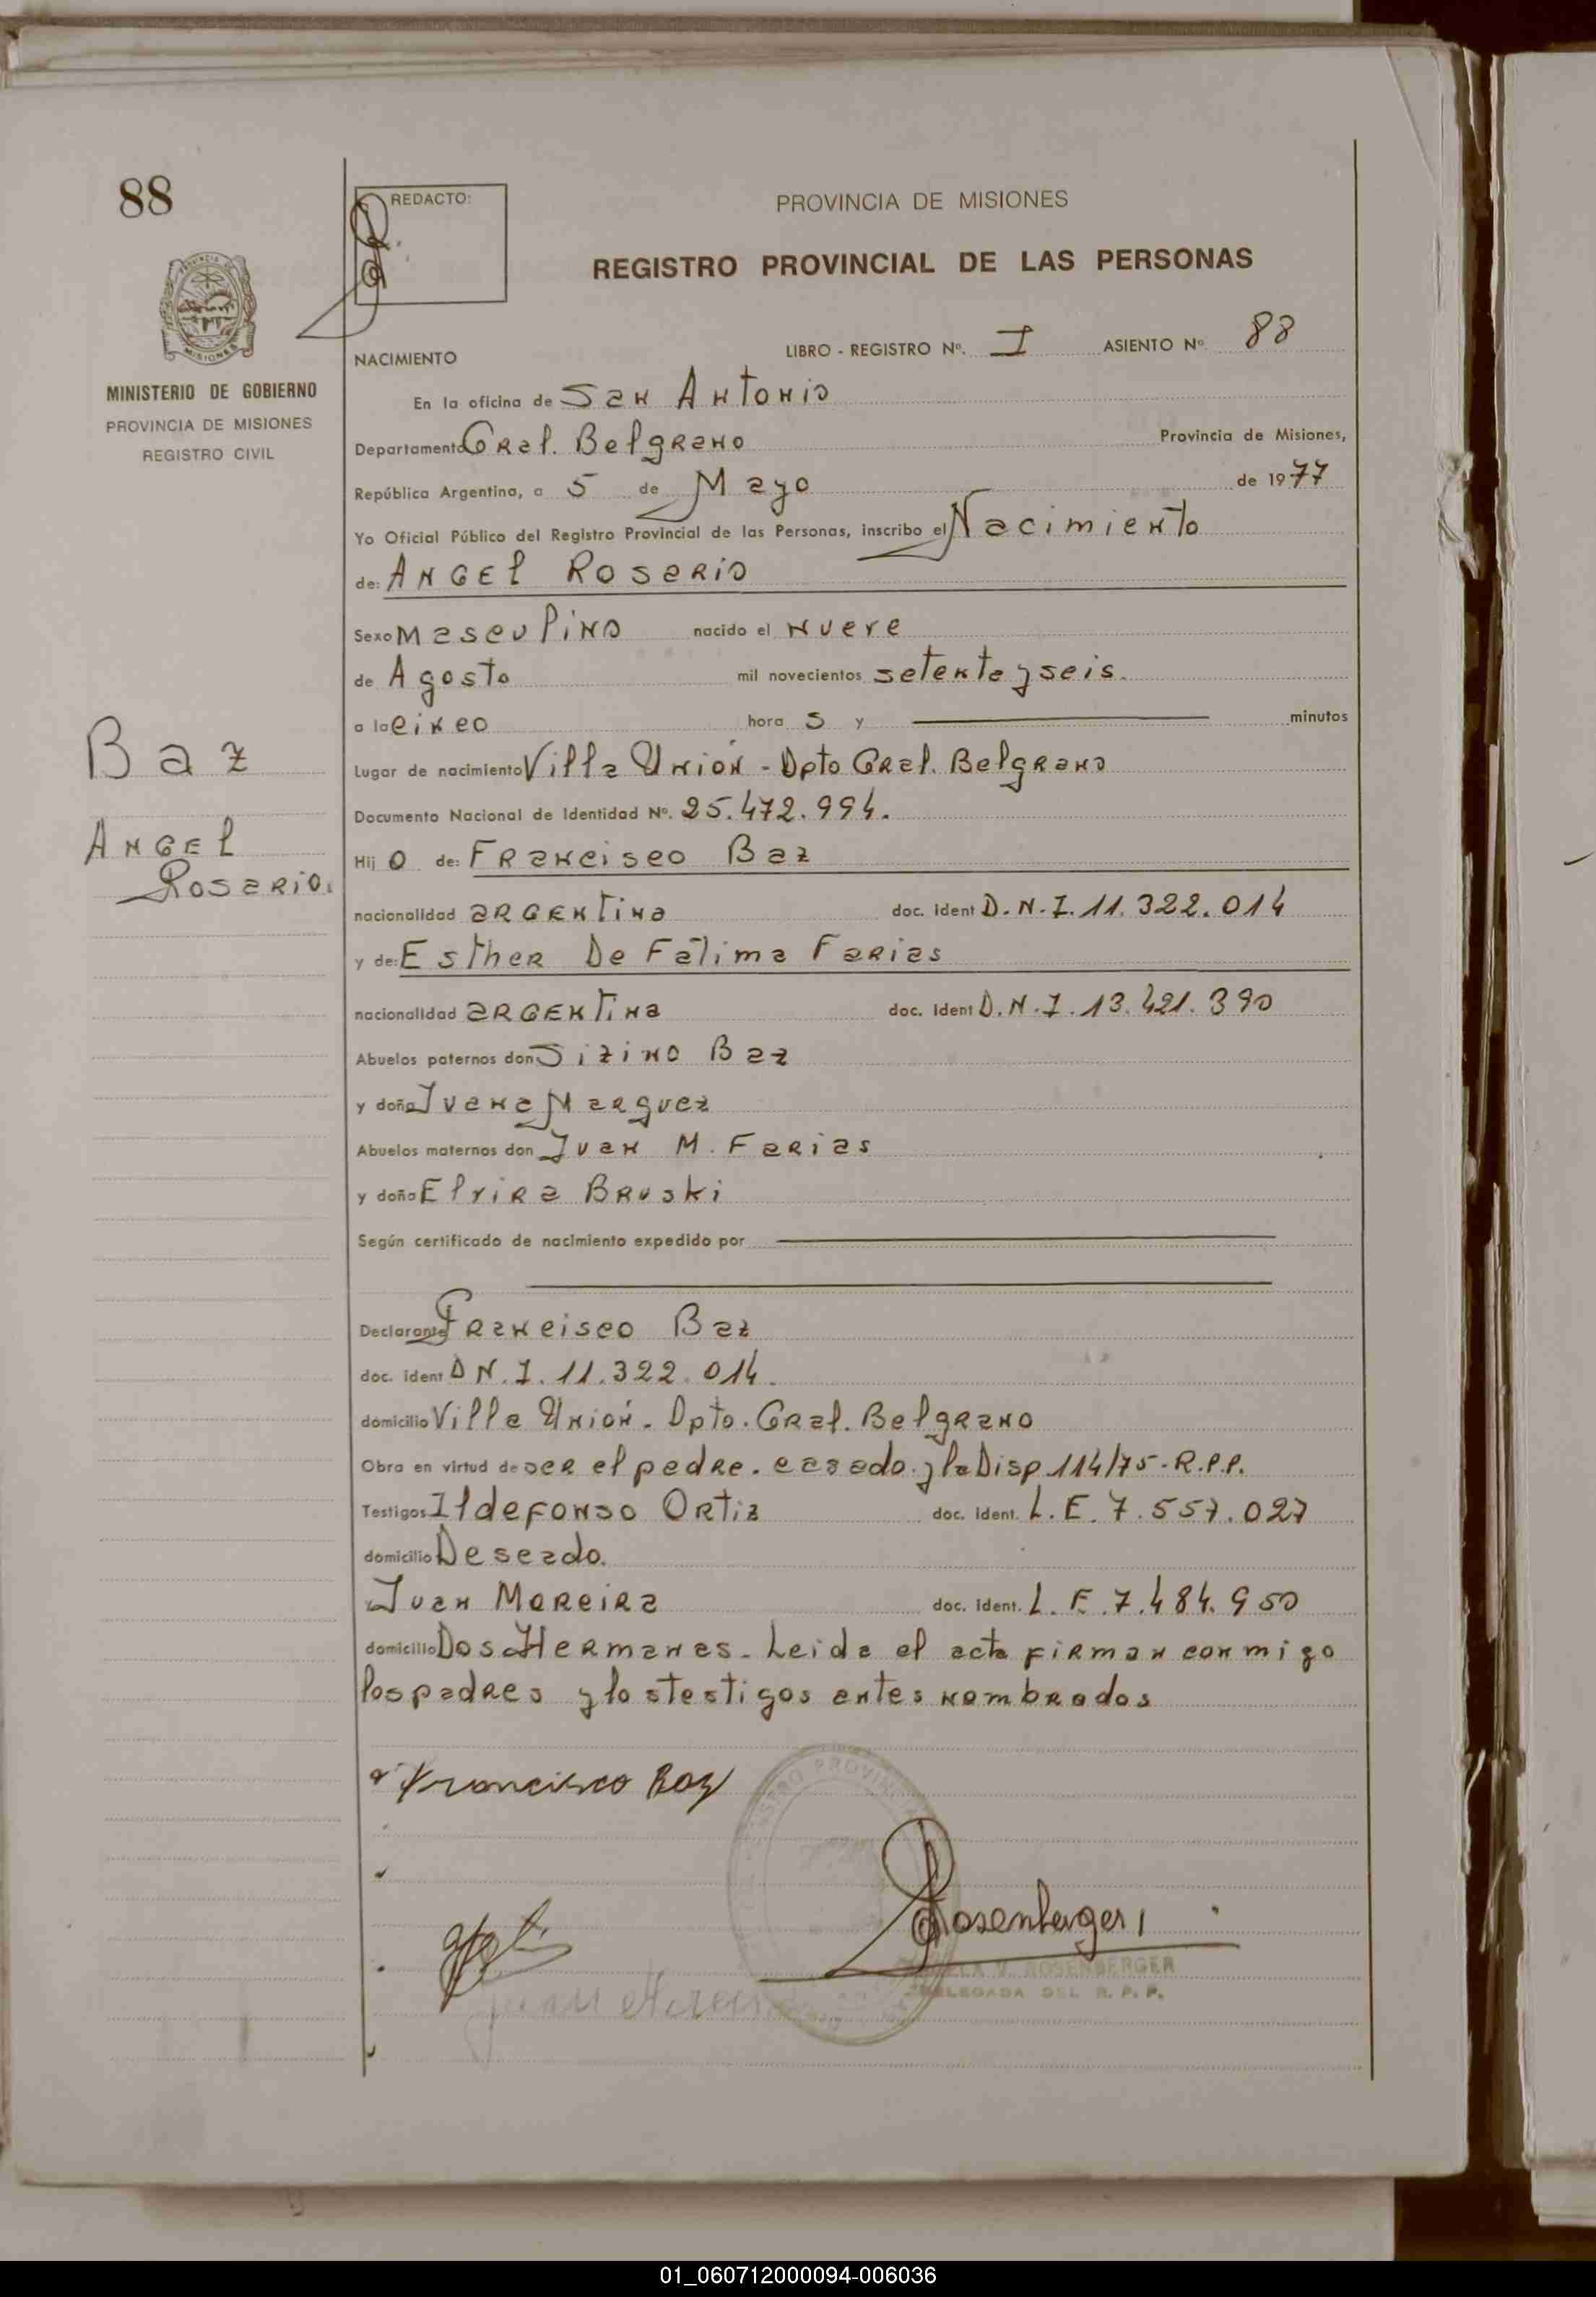 88
REDACTO:
PROVINCIA DE MISIONES
REGISTRO PROVINCIAL DE LAS PERSONAS
MISIONES
MINISTERIO DE GOBIERNO
PROVINCIA DE MISIONES
REGISTRO CIVIL
NACIMIENTO
LIBRO - REGISTRO Nº. I ASIENTO Nº 88
En la oficina de San Antonio
Departamento Gral. Belgrano Provincia de Misiones,
República Argentina, a 5 de Mayo de 1977
Yo Oficial Público del Registro Provincial de las Personas, inscribo el Nacimiento
de: Angel Rosario
Sexo masculino nacido el nueve
de Agosto mil novecientos setenta y seis.
a la cinco hora s y minutos
Baz
Lugar de nacimiento Villa Unión - Dpto Gral. Belgrano
Documento Nacional de Identidad Nº. 25.472.994.
Angel
Rosario.
Hijo de: Francisco Baz
nacionalidad argentina doc. ident D.N.I. 11.322.014
y de: Esther De Fátima Farias
nacionalidad argentina doc. ident D.N.I. 13.421.390
Abuelos paternos don Sizino Baz
y doña Juana Marquez
Abuelos maternos don Juan M. Farias
y doña Elvira Bruski
Según certificado de nacimiento expedido por
Declarante Francisco Baz
doc. ident D N.I. 11.322.014.
domicilio Villa Unión - Dpto. Gral. Belgrano
Obra en virtud de ser el padre. casado. y la Disp 114/75 - R.P.P.
Testigos Ildefonso Ortiz doc. ident. L.E. 7.557.027
domicilio Deseado.
Juan Moreira doc. ident. L.E. 7.484.950
domicilio Dos Hermanas - Leida el acta firman conmigo
los padres y los testigos antes nombrados
Francisco Baz
Rosenberger
V. ROSENBERGER
DELEGADA DEL R. P. P.
01_060712000094-006036